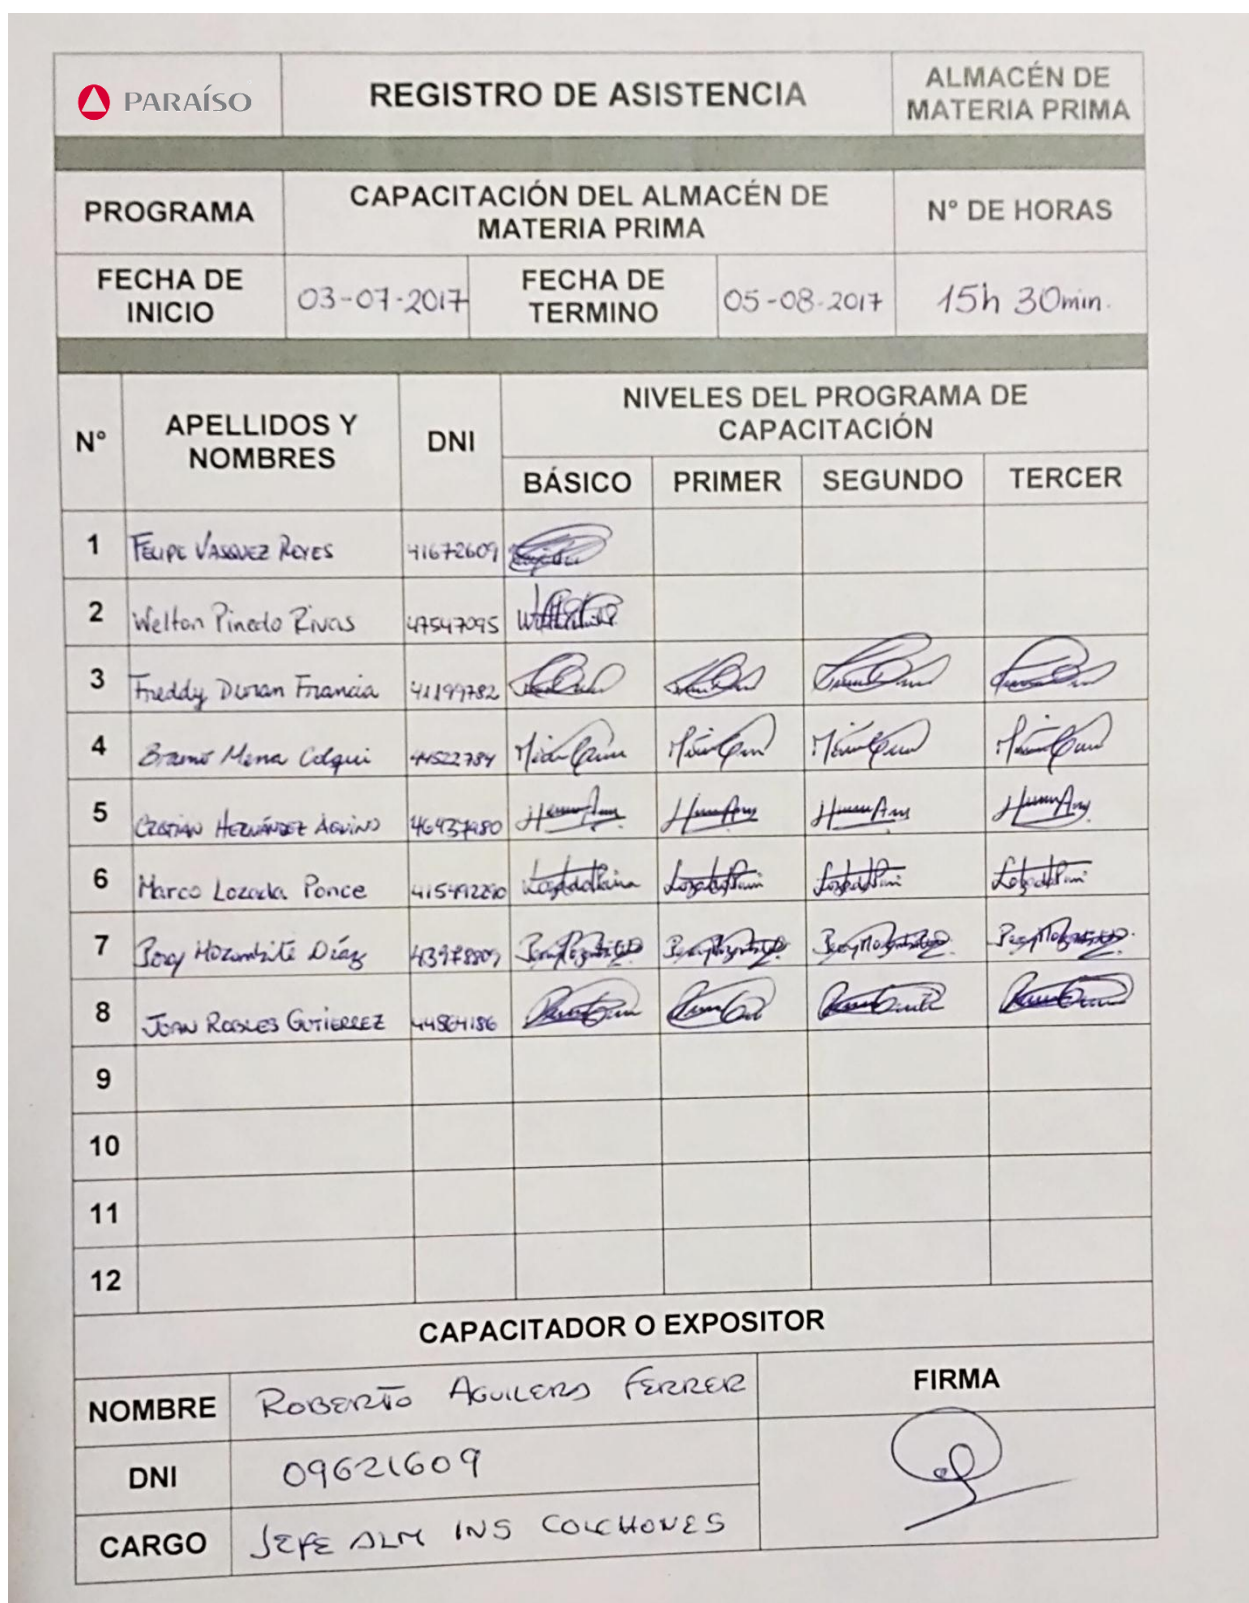 PARAÍSO
REGISTRO DE ASISTENCIA
ALMACÉN DE
MATERIA PRIMA
PROGRAMA
CAPACITACIÓN DEL ALMACÉN DE
MATERIA PRIMA
N° DE HORAS
FECHA DE
INICIO
03-07-2017
FECHA DE
TERMINO
05-08-2017
15h 30min.
N°
APELLIDOS Y
NOMBRES
DNI
NIVELES DEL PROGRAMA DE
CAPACITACIÓN
BÁSICO PRIMER SEGUNDO TERCER
1 FELIPE VASQUEZ REYES 41672609
2 Welton Pinedo Rivas 47547095
3 Freddy Duran Francia 41199782
4 Mena 44522784
5 CRISTIAN HERNÁNDEZ AQUINO
6 Marco Lozada Ponce
7 Mozombite Díaz
8 JOAN ROBLES GUTIERREZ 44864186
9
10
11
12
CAPACITADOR O EXPOSITOR
NOMBRE ROBERTO AGUILERA FERRER
FIRMA
DNI 09621609
CARGO JEFE ALM INS COLCHONES